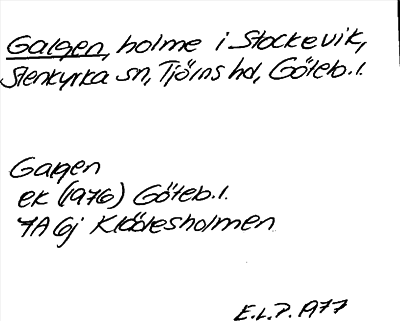 Galgen, holme i Stockevik,
Stenkyrka sn, Tjörns hd, Göteb. l.
Galgen
ek (1976) Göteb. l.
7A 6j Klädesholmen
E.L.P. 1977